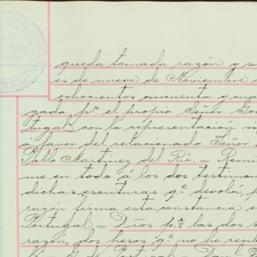 queda tomada razón y su
es de nueve de Noviembre d
ochocientos cincuenta y cua
gada pr. el propio Señor Don
tugal con la representación
a favor del relacionado Señor D
Pablo Martinez del Rio = Remi
me en todo á los dos testimon
dichas escrituras qe. devolví, p
razón firma esta constancia e
Portugal = Dros ps. las dos
razón, dos pesos qe. no he recib